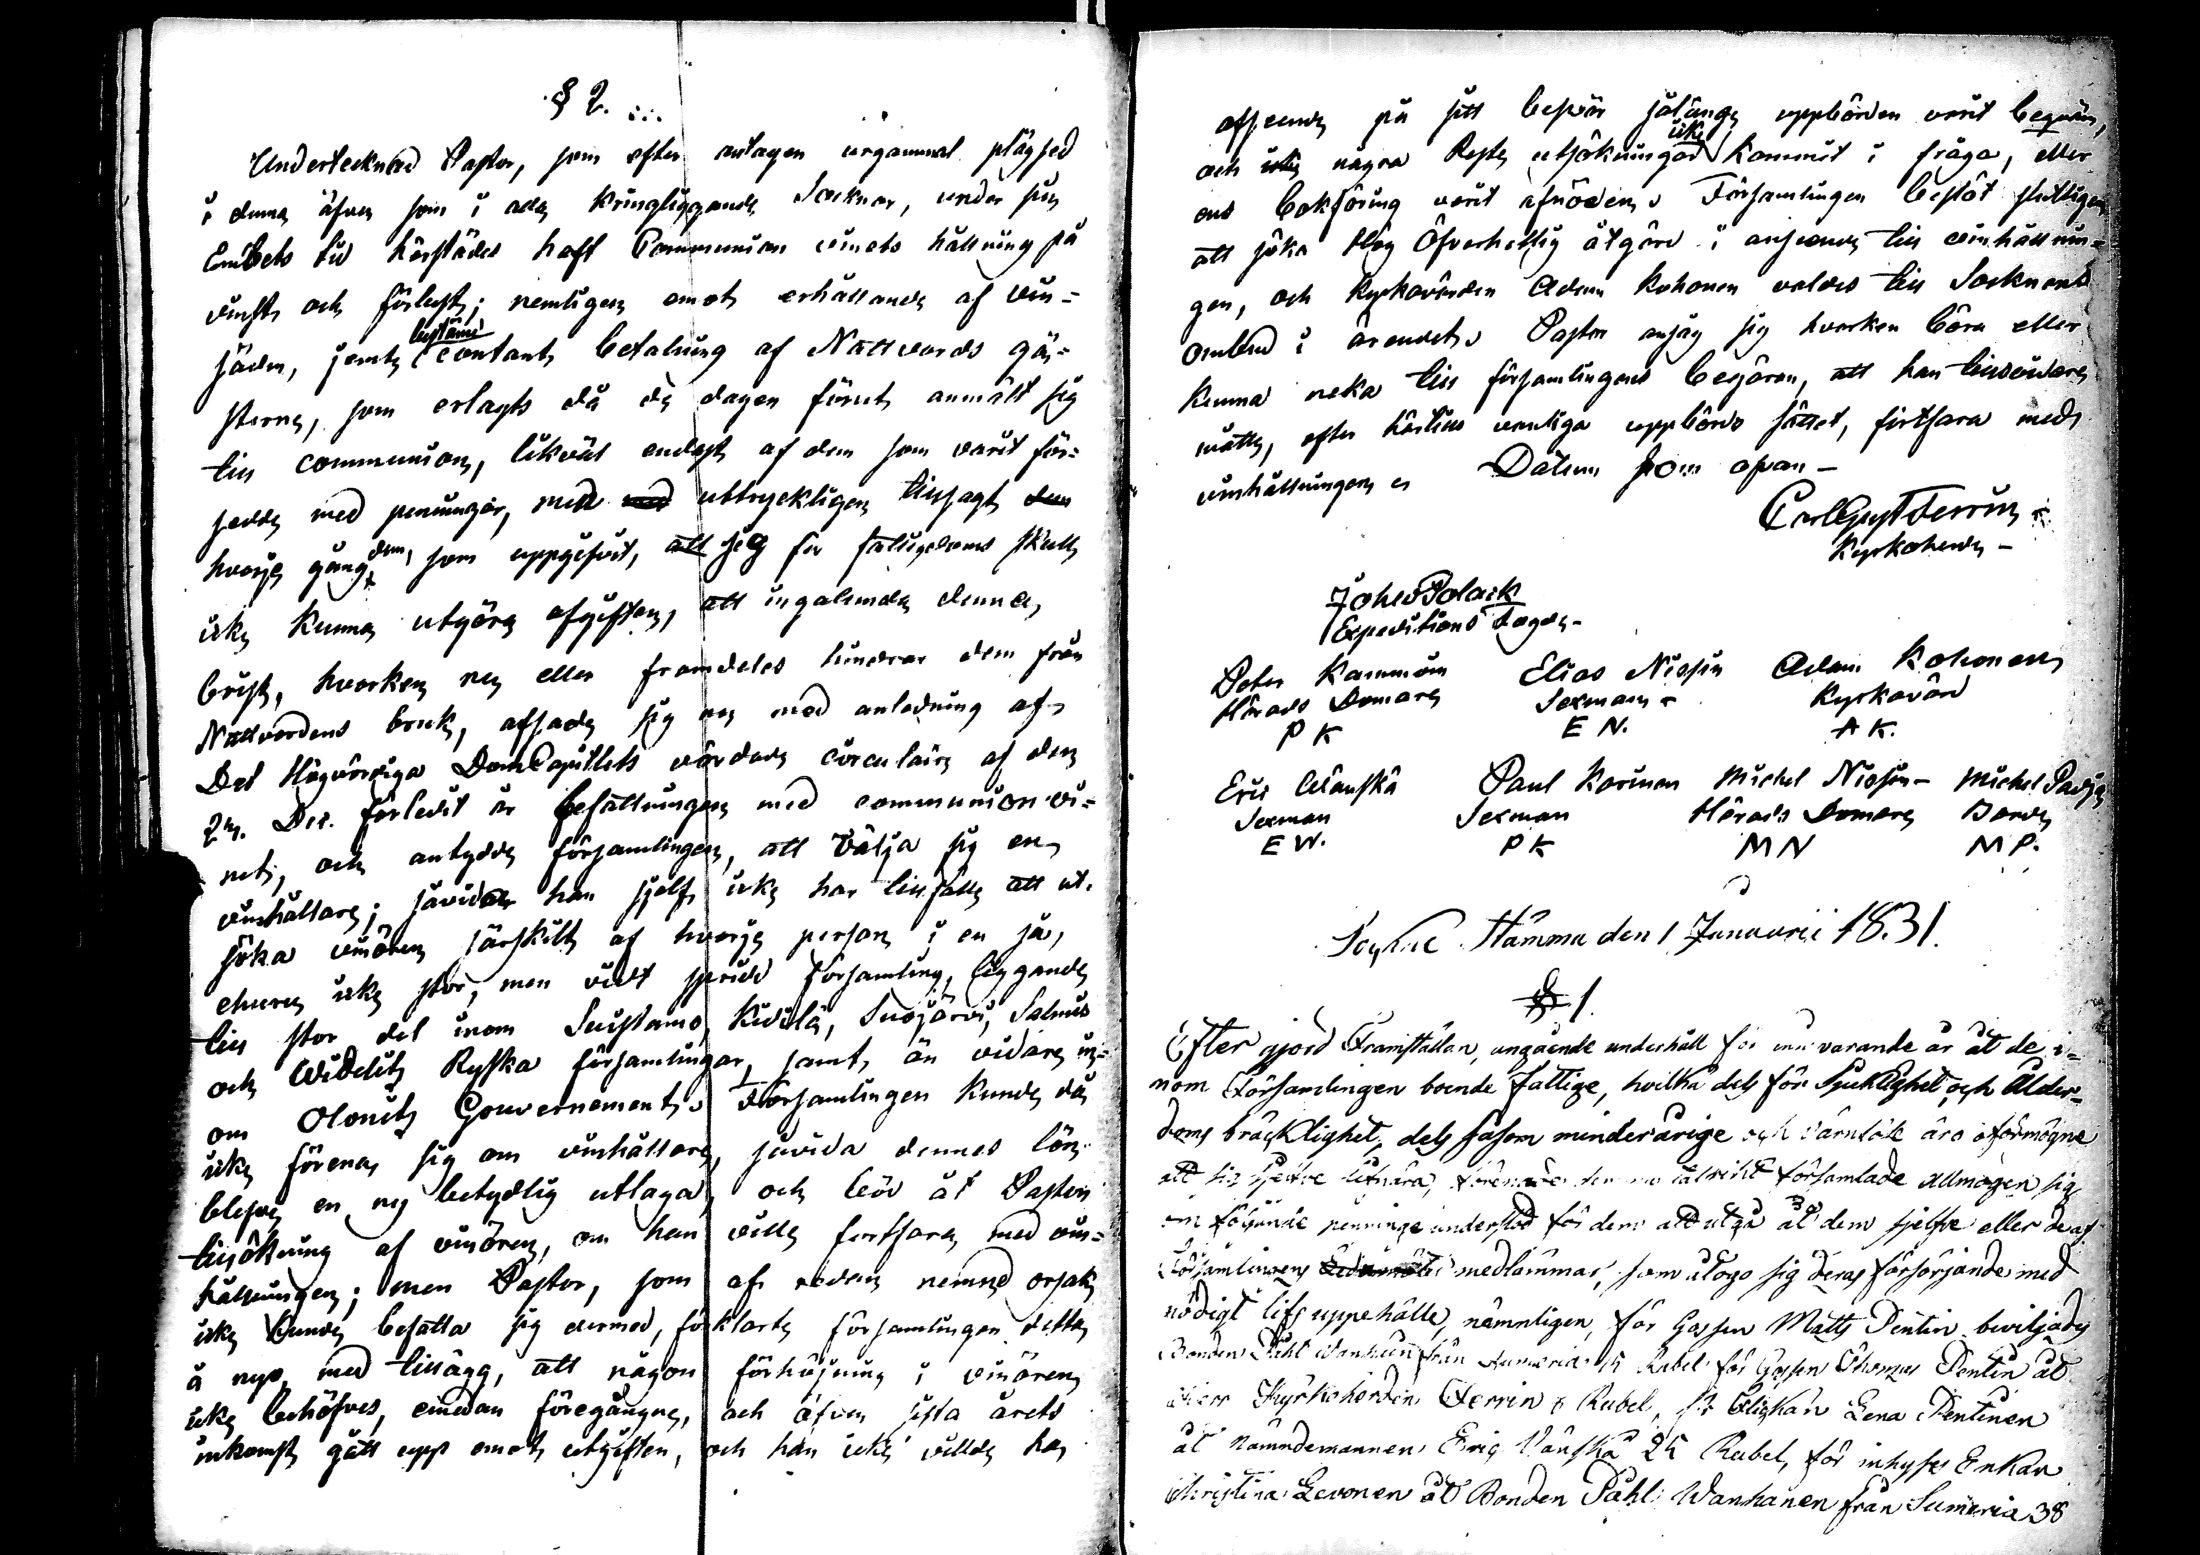 § 2.
Undertecknad Pastor, som efter antagen urgammal plägsed
i denna äfven som i alla kringliggande Socknar, under sin
Embets tid härstädes haft Communion vinets hållning på
vinst och förlust; nemligen emot erhållande af vin=
säden, jemte bestämd contant betalning af Nattvards gä=
sterne, som erlagts då de dagen förut anmält sig
till communion, likväl endast af dem som varit för=
sedde med penningar, med uttryckligen tillsagt
hvarje gång dem, som uppgifvit, att sig för fattigdoms skull
icke kunna utgöra afgiften, att ingalunda denna,
brist, hvarken nu eller framdeles hindrar dem från
Nattvardens bruk, afsade sig nu med anledning af
Det Högvördiga DomCapitlets vördade circulaire af den
Dec. förledit år befattningen med communion vi=
net, och antydde församlingen, att välja sig en
vinhållare; såvida han sjelf icke har tillfälle att ut=
söka vinören särskilt af hvarje person i en så,
ehuru icke stor, men vidt spridd församling, liggande
till stor del inom Suistamo, Kidilä, Suojärvi, Salmis
och Widelits Ryska församlingar, samt än vidare in=
om Olonets Gouvernement. Församlingen kunde då
icke förena sig om vinhållare, såvida dennes lön
blefve en ny betydlig utlaga, och böd åt Pastorn
utsökning af vinören, om han ville fortfara med vin=
hållningen; men Pastor, som af redan nemnd orsak
icke kunde befatta sig dermed, förklarte församlingen detta
å nyo, med tillägg, att någon förhöjning i vinören
icke behöfves, emedan föregångne, och äfven sista årets
inkomst gått upp emot utgiften, och han icke velat ha
afseende på sitt besvär sålänge uppbörden varit beqväm,
och några Resto utsökningar icke kommit i fråga, eller
ens bokföring varit afnöden. Församlingen beslöt slutligen
att söka Hög Öfverhetlig åtgärd i anseende till vinhållnin=
gen, och Kyrkovärden Adam Kohonen valdes till Socknens
ombud i ärendet. Pastor ansåg sig hvarken böra eller
kunna neka till församlingens begäran, att han tillsvidare
måtte, efter härtills vanliga uppbörds sättet, fortfara med
vinhållningen. Datum som ofvan –
Carl Gust Ferrin
Kyrkoherde –
Johes Polack
Expeditions Fogde –
Peter Kamminin Elias Nissin Adam Kohonen
Härads Domare Sexman Kyrkovärd
P K E N. A K.
Eric Wänskä Paul Korinen Michel Nissin – Michel Padja
Sexman Sexman Härads Domare Bonde
E W. P K M N M P.
Sockne Stämma den 1 Januarii 1831.
§ 1.
Efter gjord Framställan, angående underhåll för innevarande år åt de i=
nom Församlingen boende fattige, hvilka dels för Sjuklighet, och Ålder=
doms bräcklighet, dels såsom minderårige och värnlöse äro oförmögne
att sig sjelfve lifnära, förenade församlade allmogen sig
om följande penninge understöd för dem att utgå åt dem sjelfve eller de af
Församlingens medlämmar, som åtogo sig deras försörjande med
nödigt lifs uppehälle, nämnligen, för Gossen Matts Pentin beviljades
Bonden Påhl Wanhanen från Sumeria 15 Rubel för Gossen Thomas Pentin åt
Herr Kyrkoherden Ferrin Rubel, för Flickan Lena Pentinen
åt Nämndemannen Eric Vänskä 25 Rubel, för inhyses Enkan
Christina Levonen åt Bonden Påhl Wanhanen från Sumeria 38